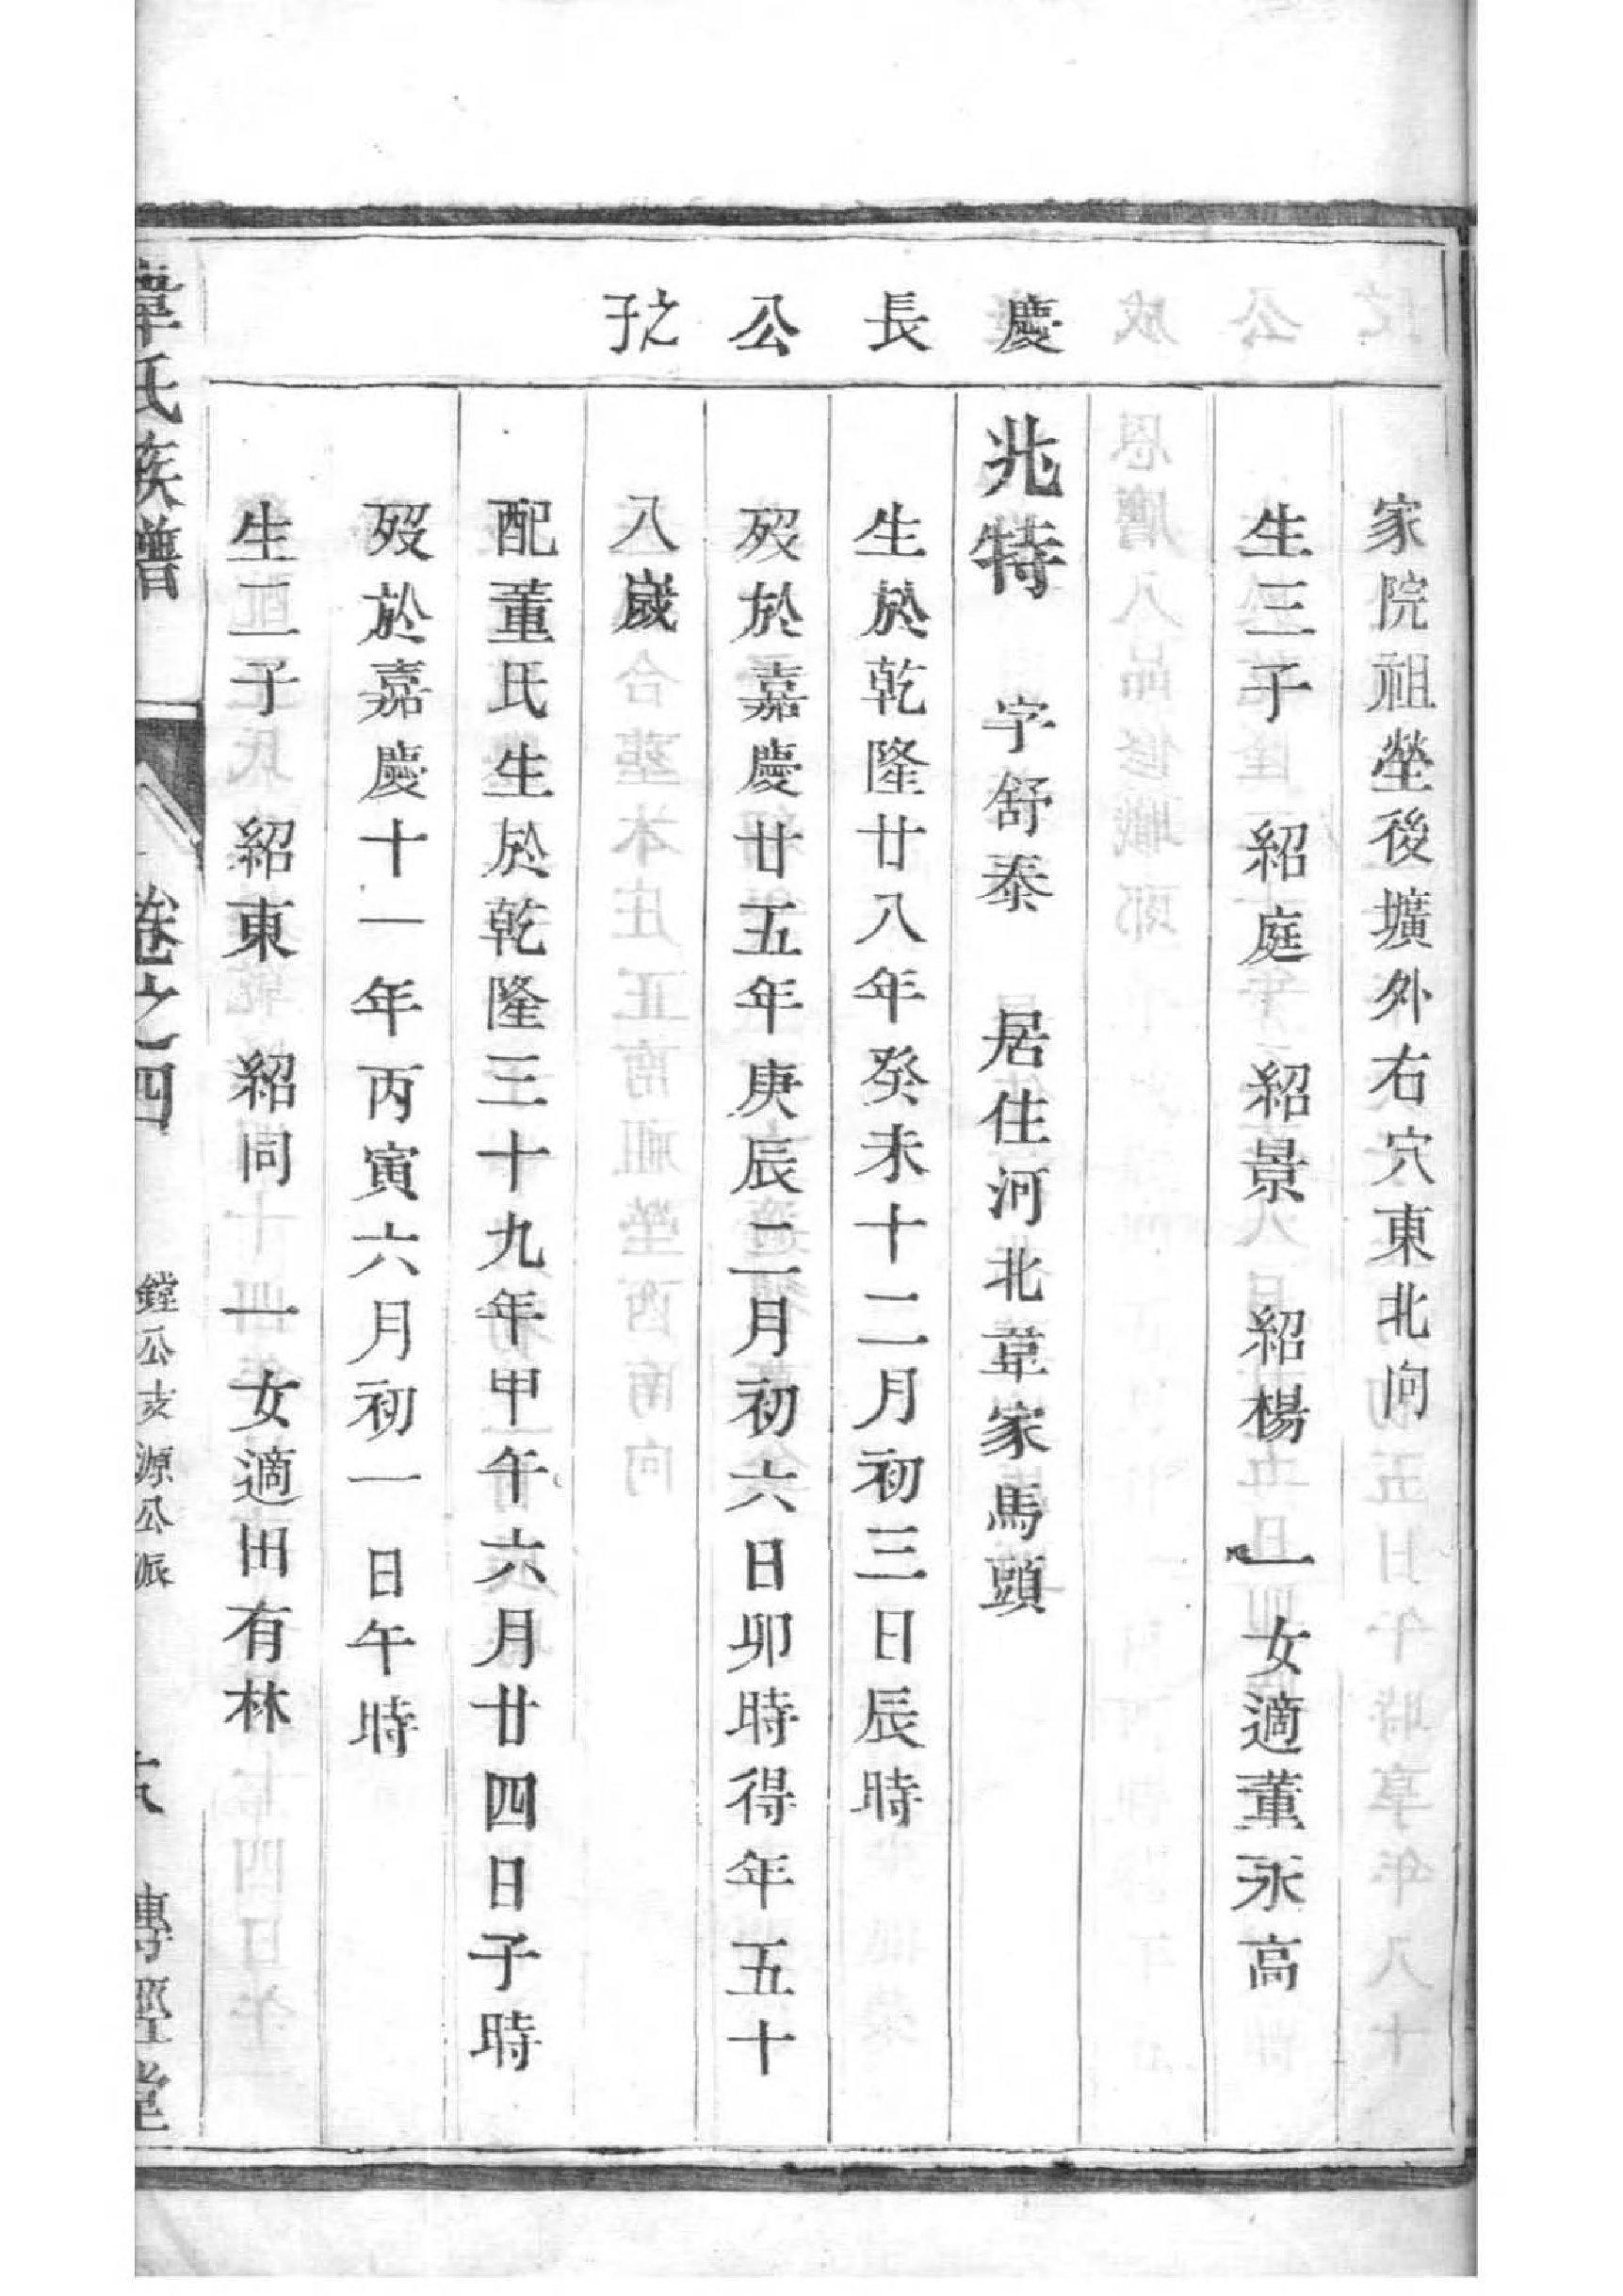 家院祖塋後壙外右穴東北向
生三子　紹庭　紹景　紹楊　一女適董永高
慶長公孜
兆特　字舒泰　居住河北韋家馬頭
生於乾隆廿八年癸未十二月初三日辰時
歿於嘉慶廿五年庚辰二月初六日卯時得年五十
八嵗
配董氏生於乾隆三十九年甲午六月廿四日子時
歿於嘉慶十一年丙寅六月初一日午時
生二子　紹東　紹同　一女適田有林
韋氏族譜　卷之四　鏜公支源公派　傳經堂